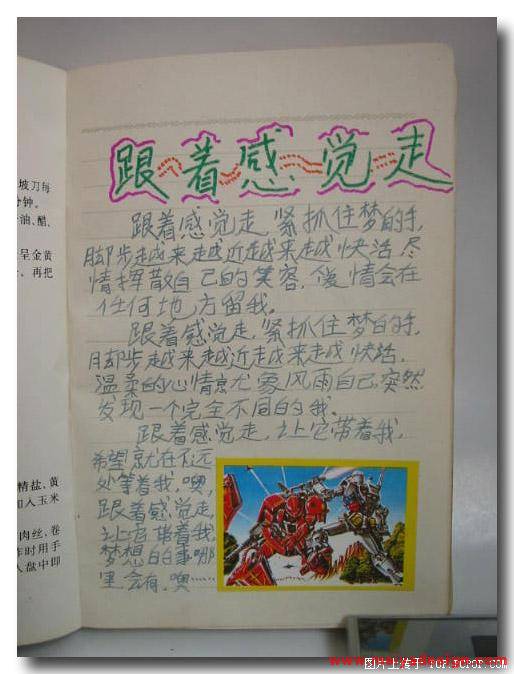 坡刀每
分钟。
油、醋、
呈金黄
、再把
精盐、黄
加入玉米
肉丝、卷
炸时用手
入盘中即
跟着感觉走
跟着感觉走,紧抓住梦的手,
脚步越来越近越来越快活,尽
情挥散自己的笑容,情会在
任何地方留我。
跟着感觉走,紧抓住梦的手,
脚步越来越近越来越快活,
温柔的心情尤象风雨自己,突然
发现一个完全不同的我。
跟着感觉走,让它带着我,
希望就在不远
处等着我,噢,
跟着感觉走,
让它带着我,
梦想的的事哪
里会有,噢
图片上传于